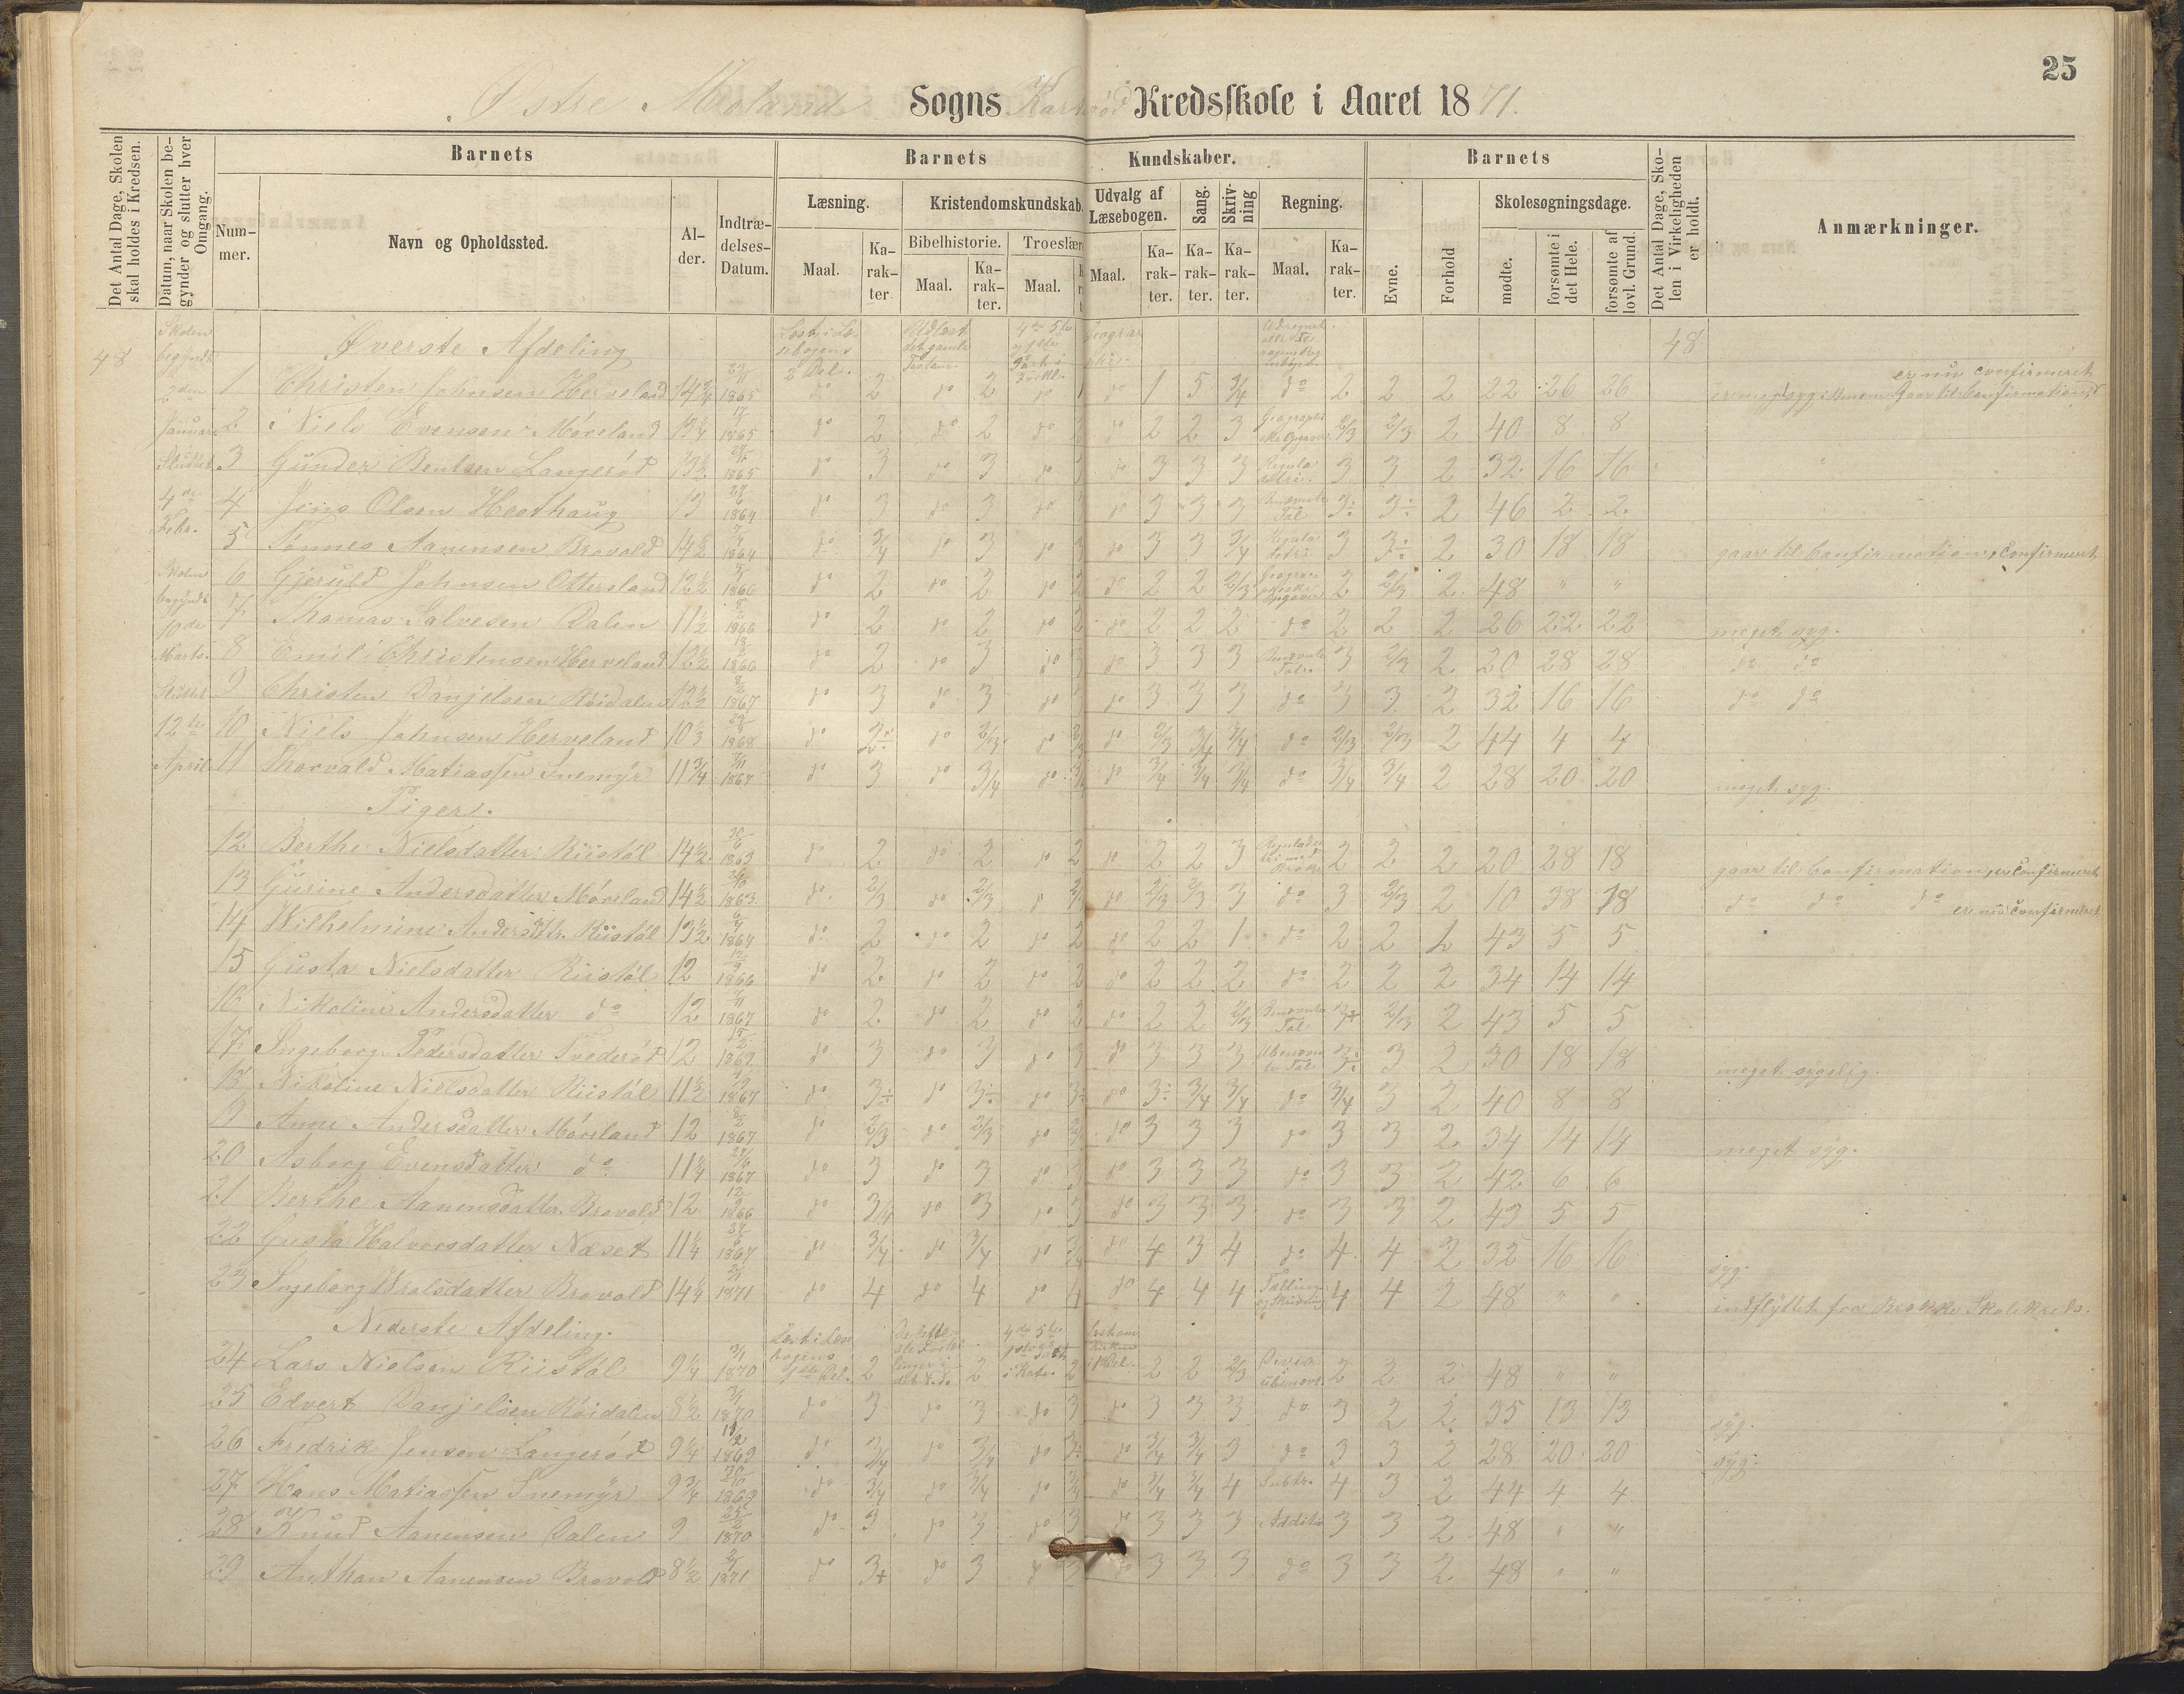 25
Østre Moland Sogns Kredsskole i Aaret 1871.
Det Antal Dage, Skolen skal holdes i Kredsen.
Datum, naar Skolen begynder og slutter hver Omgang.
Barnets
Nummer.
Navn og Opholdssted.
Alder.
Indtrædelses-Datum.
Barnets Kundskaber.
Læsning.
Maal.
Karakter.
Kristendomskundskab
Bibelhistorie.
Maal.
Karakter.
Troeslær
Maal.
Udvalg af Læsebogen.
Maal.
Karakter.
Sang.
Karakter.
Skrivning
Karakter.
Regning.
Maal.
Karakter.
Barnets
Evne.
Forhold
Skolesøgningsdage.
mødte.
forsømte i det Hele.
forsømte af lovl. Grund.
Det Antal Dage, Skolen i Virkeligheden er holdt.
Anmærkninger.
48 Skolen begyndte 2den Januar Sluttet 4de Febr.
Skolen begyndte 10de Marts. Sluttet 12te April
Øverste Afdeling 48
er nu confirmeret
1 Christen Johnsen Herveland 14 3/4 1865 do 2 do 2 do 1 do 1 5 3/4 do 2 2 2 22 26 26
2 Niels Evensen Møreland 13 1/4 1865 do 2 do 2 do do 2 2 3 2/3 2/3 2 40 8 8
3 Gunder Bentsen Langerød 13 1/2 1865 do 3 do 3 do 3 do 3 3 3 3 3 2 32 16 16
4 Jens Olsen Hesthaug 13 1864 do 3 do 3 do 3 do 3 3 3 3÷ 3÷ 2 46 2 2
5 Tønnes Aanensen Brovold 14 1/2 1864 do 3/4 do 3 do 3 do 3 3 3/4 3 3÷ 2 30 18 18 gaar til Confirmation, Confirmeret
6 Gjeruld Johnsen Ottersland 12 1/2 1866 do 2 do 2 do 2 do 2 2 2/3 2 2/3 2 48 " "
7 Thomas Salvesen Dalen 11 1/2 1866 do 2 do 2 do 2 do 2 2 2 do 2 2 2 26 22 22 meget syg.
8 Emil Christensen Herveland 12 1/2 do 2 do 3 do 3 do 3 3 3 3 2/3 2 20 28 28 do do
9 Christen Danjelsen Röidalen 12 1/2 1867 do 3 do 3 do do 3 3 3 do 3 3 2 32 16 16 do do
10 Niels Johnsen Herveland 10 1/3 1868 do do 2/3 do 2/3 do 2/3 3/4 3/4 do 2/3 2/3 2 44 4 4
11 Thorvald Matiassen Snemyr 11 3/4 1867 do 3 do 3/4 do 3/4 do 3/4 3/4 3/4 do 3/4 3/4 2 28 20 20 meget syg.
Piger.
12 Berthe Nielsdatter Riistöl 14 1/2 1863 do 2 do 2 do 2 do 2 2 3 2 2 2 20 28 18 gaar til Confirmation, er Confirmeret
13 Gurine Andersdatter Møreland 14 1/2 1863 do 2/3 do 2/3 do 2/3 do 2/3 2/3 3 do 3 2/3 2 10 38 18 do do do
er nu Confirmeret
14 Wilhelmine Andersdtr. Riistöl 13 1/2 1864 do 2 do 2 do 2 do 2 2 1 do 2 2 2 43 5 5
15 Gusta Nielsdatter Riistöl 12 1866 do 2 do 2 do 2 do 2 2 2 do 2 2 2 34 14 14
16 Nikoline Andersdatter do 12 1867 do 2 do 2 do 2 do 2 2 2/3 2/3 2 43 5 5
17 Ingeborg Pedersdatter Tvederød 12 1869 do 3 do 3 do 3 do 3 3 3 3÷ 3 2 30 18 18 meget sygelig.
18 Nikoline Nielsdatter Riistöl 11 1/2 1867 do 3÷ do 3÷ do 3÷ do 3÷ 3/4 3/4 do 3/4 3 2 40 8 8
19 Anne Andersdatter Møreland 12 1867 do 2/3 do 2/3 do do 3 3 3 do 3 3 2 34 14 14 meget syg.
20 Asborg Evensdatter do 11 1/4 1867 do 3 do 3 do 3 do 3 3 3 do 3 3 2 42 6 6
21 Berthe Aanensdatter Brovold 12 1866 do 3/4 do 3 do 3 do 3 3 3 do 3 3 2 43 5 5
22 Gusta Halvorsdatter Næset 11 1/4 1867 do 3/4 do 3/4 do 3/4 do 4 3 4 do 4 4 2 32 16 16 syg.
23 Ingeborg Brovold 14 1/4 1871 do 4 do 4 do 4 do 4 4 4 4 4 2 48 " " indflyttet fra Skolekreds.
Nederste Afdeling.
24 Lars Nielsen Riistöl 9 1/4 1870 2 2 2 2 2 2/3 2 2 2 48 " "
25 Edvert Danjelsen Röidalen 8 1/2 1870 do 3 do 3 do 3 do 3 3 3 do 3 2 2 35 13 13 syg.
26 Fredrik Jensen Langerød 9 1/4 1869 do 3/4 do 3/4 do 3÷ do 3/4 3/4 3 do 3 3 2 28 20 20 syg.
27 Hans Matiassen Snemyr 9 3/4 1869 do 3/4 do 3/4 do 3/4 do 3/4 3/4 4 Subtr. 4 3 2 44 4 4
28 Knud Aanensen Dalen 9 1870 do 3 do 3 do 3 do 3 3 3 Additi 3 3 2 48 " "
29 Anthon Aanensen Brovold 8 1/2 1871 do 3+ do 3 do 3 do 3 3 3 do 3 3 2 48 " "